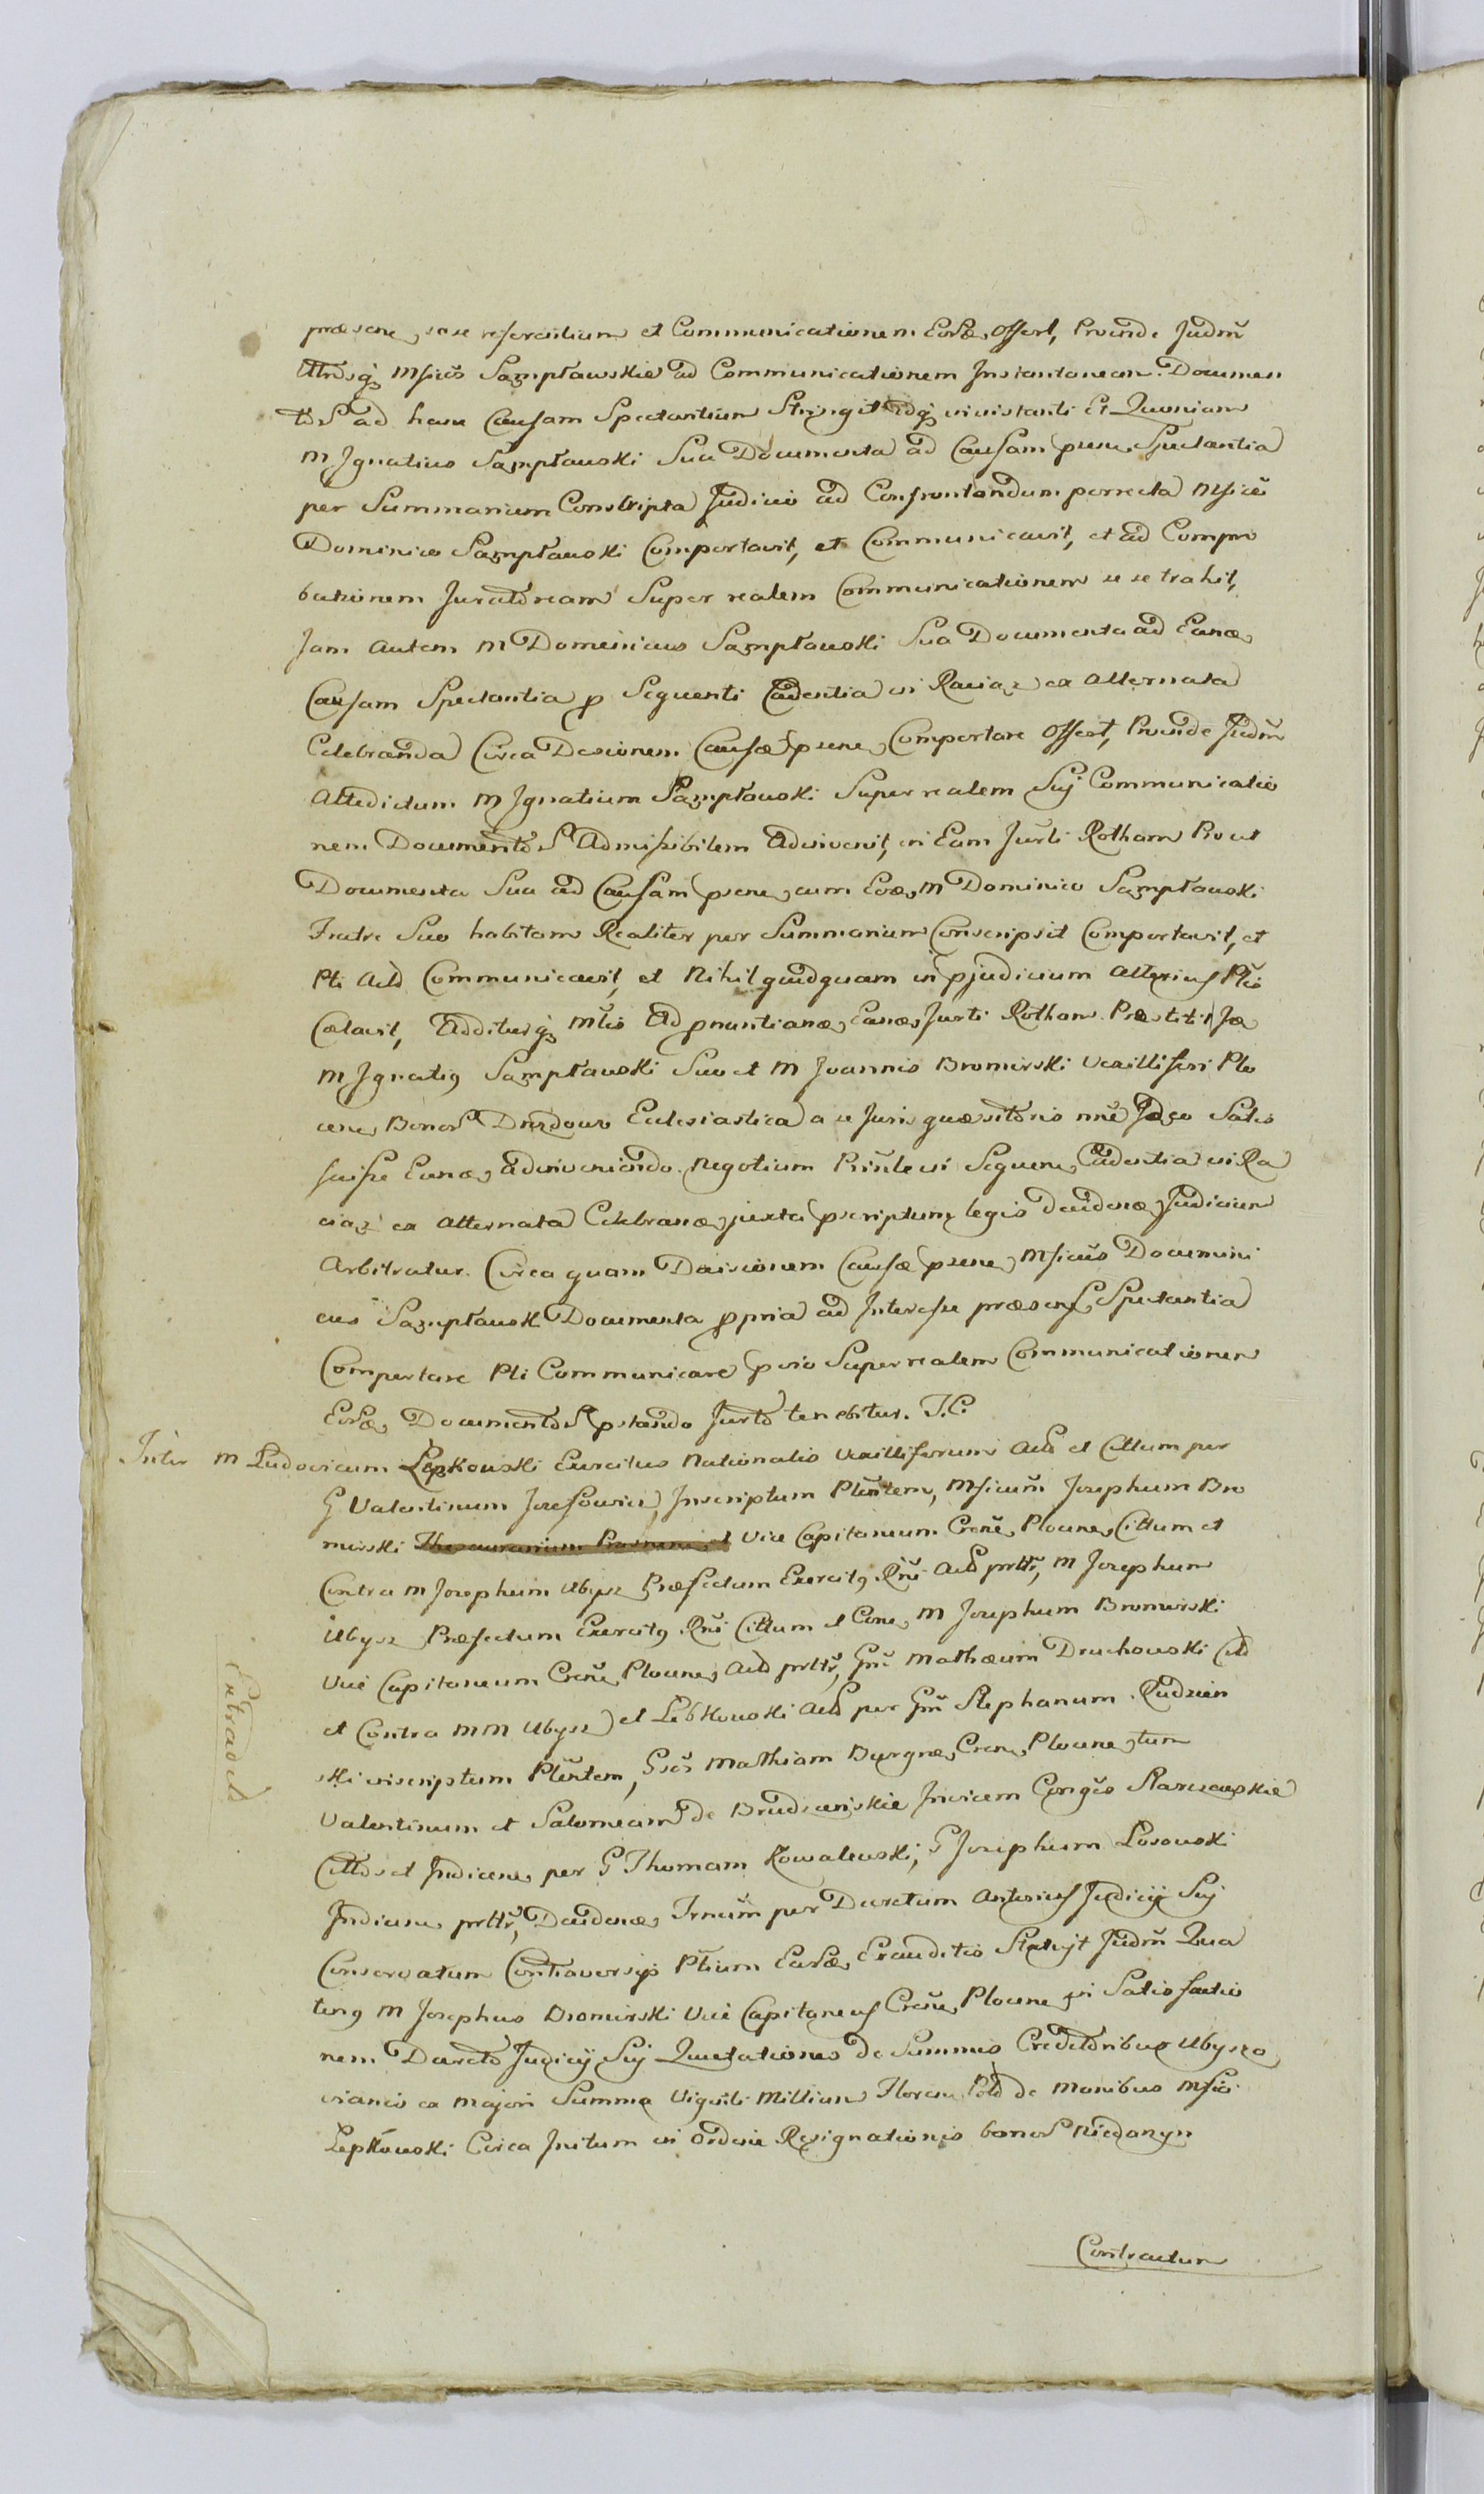 præsene, sese referentium et Communicationem Eorlæ, offert, Proinde Judm̃
Utrosq, Mficos Sampławskie ad Communicationem Instantaneam Documen
torum ad hanc Causam Spectantium Stringit Idq, in instanti Et Quoniam
M Ignatius Sampławski Sua Documenta ad Causam psene, Spectantia
per Summarium Conscripta Judicio ad Confrontandum porrecta Mfico
Dominico Sampławski Comportavit, et Communicavit, et ad Compro
bationem Juratoream Super realem Communicationem se se trahit,
Jam autem M Dominicus Sampławski Sua Documenta ad Eanæ,
Causam Spectantia p Sequenti Cadentia in Raciąz ex alternata
Celebranda Circa Decionem Causæ psene, Comportare Offert, Proinde Judm̃
Attedictum M Ignatium Sampławski Super realem Sui Communicatio
nem Documentor Admissibilem Adinvenit, in Eam Jurti Rotham Prout
Documenta Sua ad Causam psene, cum Eoæ, M Dominico Sampławski
Fratre Suo habitam Realiter per Summarium Conscripsit Comportavit, et
Pti Acto Communicavit, et Nihil quidquam in pjudicium alterius Ptis
Celavit, Additusq, Mtis Ad pnuntianæ, Eanæ, Jurti Rotham Præstitit Jæ
M Ignatig Sampławski Suo et M Joannis Bromirski Vexilliferi Plo
cene, Bonor Drozdowo Ecclesiastica a se Juris quæsitoris nne Judco Satis
fuisse Eanæ, adinveniendo Negotium Prinle in Seguene, Cadentia in Ra
ciąz ex alternata Celebranæ, juxta pscriptum legis Decidenæ, Judicium
Arbitratur. Circa quam Decisionem Causæ psene, Mficus Documini
cus Sampławski Documenta ppria ad Interesse præsens Spectantia
Comportare Pti Communicare pvio Super realem Communicationem
Eorlæ, Documentor pstando Jurto tenebitur. I.C.
Inter M Ludovicum Łepkowski Exercitus Nationalis Vexilliferum Act et Cittum per
G Valentinum Jozefowicz, Inscriptum Pltentem, Mficum̃ Josephum Bro
mirski Vice Capitaneum Crene, Plocene, Cittum et
Contra M Josephum Ubysz Præfectum Exercitg Rni Act prttr, M Josephum
Ubysz Præfectum Exercitg Rni Cittum et Cone, M Josephum Bromirski
Vice Capitaneum Crene, Plocene, Act prttr, Gm̃ Mathæum Druchowski Cit
et Contra MM Ubysz et Łebkowski Act per Gm̃ Stephanum Rudzien
ski inscriptum Pltentem, Gsos Mathiam Burgræ, Crene, Plocene, tum
Valentinum et Salomeam de Brudzewskie Invicem Congis Starczewskie
Cittos et Indicene, per G Thomam Kowalewski, G Josephum Losowski
Indicene, prttr, Decidenæ, Trnum̃ per Decretum Anterius Judicij Sui
Conservatum Controversijs Ptium Earlæ, Exauditis Statuit Judm̃ Qua
teng M Josephus Bromirski Vice Capitaneus Crene, Plocene, in Satisfactio
nem Decreto Judicij Sui Quietationes de Summis Creditoribus Ubyszo
vianis ex Majori Summa Viginti Millium Floren Pold de Manibus Mfici
Łepkowski Circa Initum in Ordine Resignationis bonor Niedarzyn
Contractum
Extrad